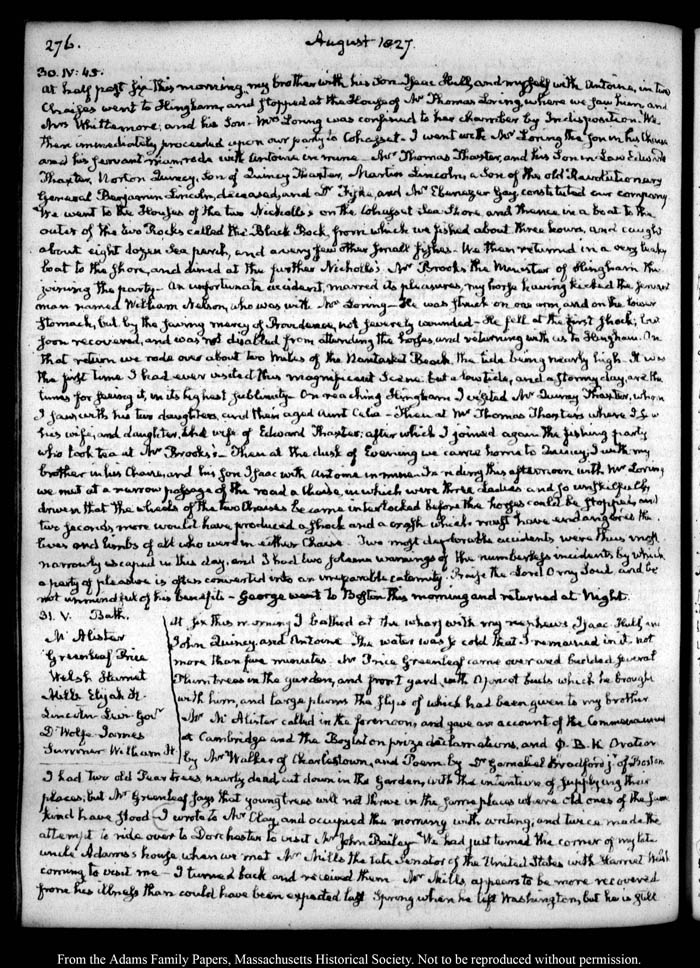 276.
August 1827.
30. IV: 45.
At half past six this morning, my brother with his Son Isaac Hull, and myself with Antoine, in two
Chaises went to Hingham, and stopped at the House of Mr Thomas Loring, where we saw him, and
Mrs Whittemore; and his Son. Mrs Loring was confined to her chamber by Indisposition. We
then immediately proceeded upon our party to Cohasset. I went with Mr Loring the Son in his Chaise
and his servant man rode with Antoine in mine. Mr Thomas Thaxter, and his Son in Law Edward
Thaxter, Norton Quincy, Son of Quincy Thaxter, Martin Lincoln, a Son of the old Revolutionary
General Benjamin Lincoln, deceased, and Dr Fiske, and Mr Ebenezer Gay, constituted our company
We went to the Houses of the two Nicholls's on the Cohasset Sea Shore, and thence in a boat to the
outer of the two Rocks called the Black Rock, from which we fished about three hours, and caught
about eight dozen Sea perch, and a very few other small fishes. We then returned in a very leaky
boat to the Shore, and dined at the further Nicholls's. Mr Brooks the Minister of Hingham there
joining the party. An unfortunate accident, marred its pleasures, my horse having kicked the servant
man named William Nelson, who was with Mr Loring. He was struck on one arm, and on the lower
stomach, but by the saving mercy of Providence, not severely wounded. He fell at the first shock; but
soon recovered, and was not disabled from attending the horses, and returning with us to Hingham. On
that return we rode over about two miles of the Nantasket Beach, the tide being nearly high. It was
the first time I had ever visited this magnificent Scene. but a low tide, and a stormy day, are the
times for seeing it, in its highest sublimity. On reaching Hingham I visited Mr Quincy Thaxter, whom
I saw with his two daughters, and their aged Aunt Celia. Then at Mr Thomas Thaxter's where I saw
his wife, and daughter, the wife of Edward Thaxter; after which I joined again the fishing party
who took tea at Mr Brooks's. Then at the dusk of Evening we came home to Quincy; I with my
brother in his Chaise, and his Son Isaac with Antoine in mine. In riding this afternoon with Mr Loring
we met at a narrow passage of the road a Chaise, in which were three Ladies and so unskilfully
driven that the wheels of the two Chaises became interlocked before the horses could be stopped, and
two seconds more would have produced a shock and a crash which must have endangered the
lives and limbs of all who were in either Chaise. Two most deplorable accidents were thus most
narrowly escaped in this day, and I had two solemn warnings of the numberless incidents by which
a party of pleasure is often converted into an irreparable calamity. Praise the Lord O my Soul and be
not unmindful of his benefits. George went to Boston this morning and returned at Night.
31. V. Bath.
Mc Alister
Greenleaf Price
Welsh Harriet
Mills Elijah H.
Lincoln Levi Govr
D'Wolfe James
Sumner William H.
At six this morning I bathed at the wharf with my nephews, Isaac Hull, and
John Quincy, and Antoine. The water was so cold that I remained in it not
more than five minutes. Mr Price Greenleaf came over and budded several
Plum trees in the garden, and front yard, with Apricot buds which he brought
with him, and large plums the slips of which had been given to my brother
Mr Mc Alister called in the forenoon, and gave an account of the Commencement
at Cambridge and the Boylston prize declamations, and Φ. B. K. Oration
by Mr Walker of Charlestown, and Poem by Dr Gamaliel Bradford jr. of Boston
I had two old Pear trees nearly dead cut down in the Garden, with the intention of supplying their
places; but Mr Greenleaf says that young trees will not thrive in the same places where old ones of the same
kind have stood. I wrote to Mr Clay, and occupied the morning with writing, and twice made the
attempt to ride over to Dorchester to visit Mr John Bailey. We had just turned the corner of my late
uncle Adams's house when we met Mr Mills the late Senator of the United States with Harriet Welsh
coming to visit me. I turned back and received them. Mr Mills appears to be more recovered
from his illness than could have been expected last Spring when he left Washington, but he is still
From the Adams Family Papers, Massachusetts Historical Society. Not to be reproduced without permission.